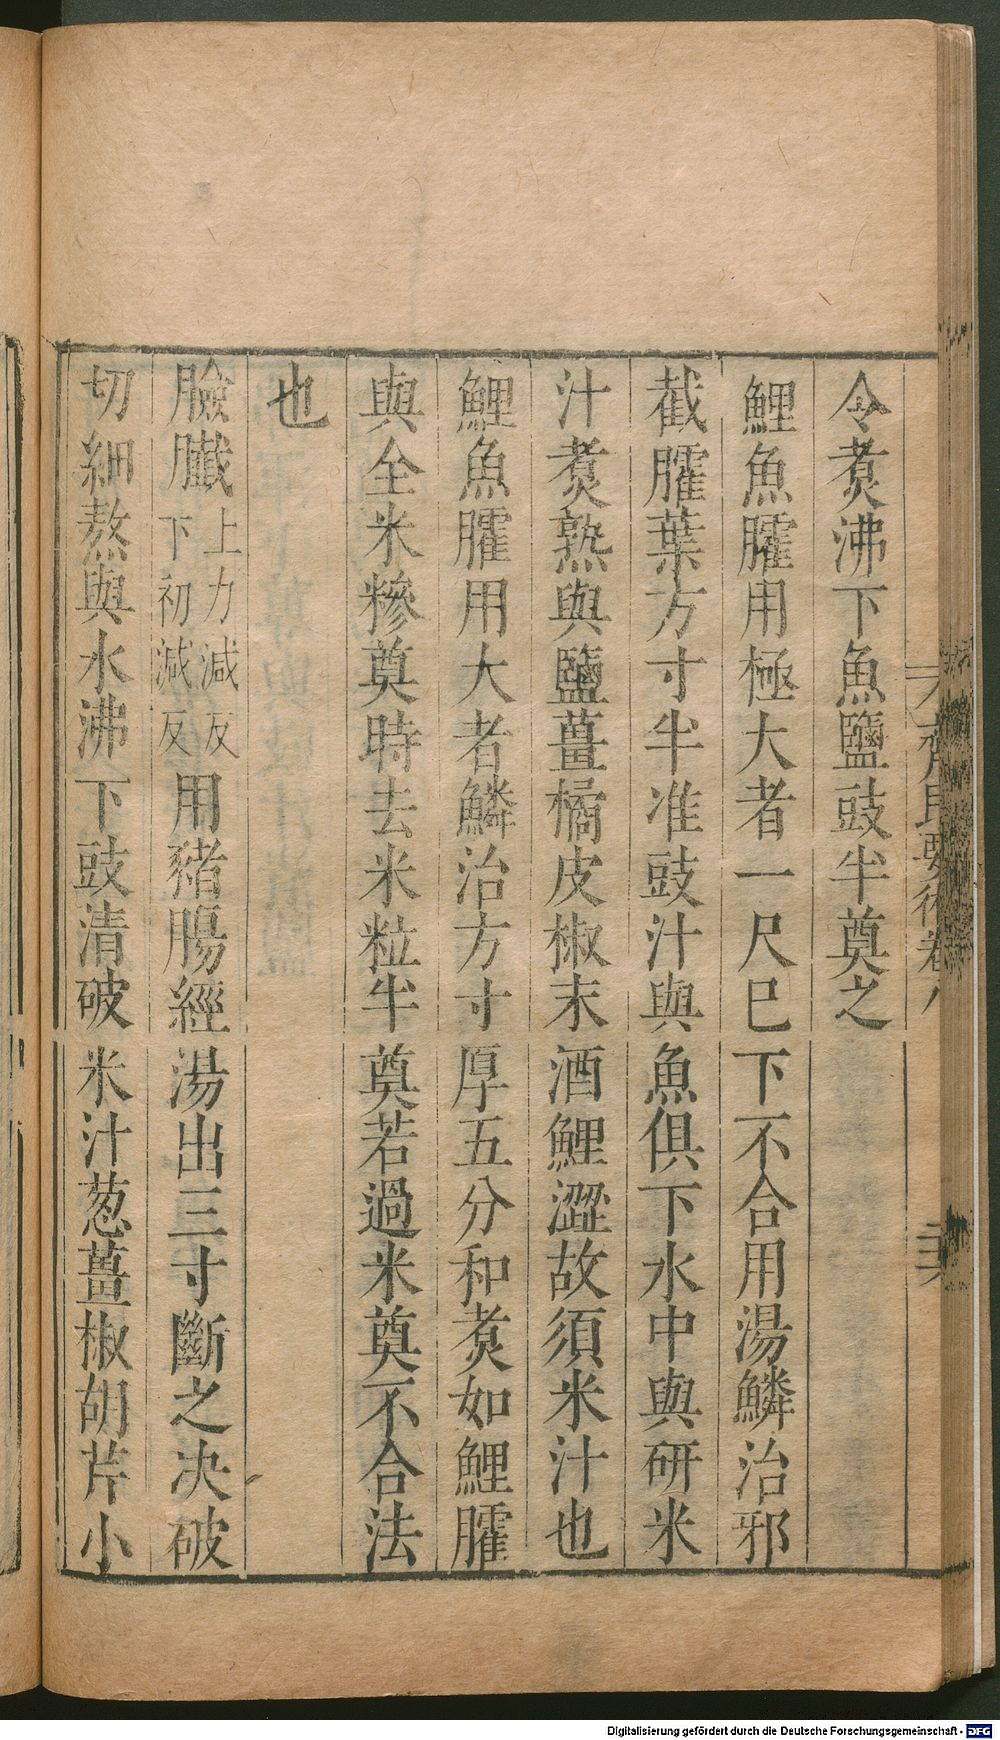 令煑沸下魚鹽豉半奠之
鯉魚臛用極大者一尺巳下不合用湯鱗治邪
截臛葉方寸半准豉汁與魚俱下水中與研米
汁煑熟與鹽薑橘皮椒末酒鯉澀故須米汁也
鯉魚臛用大者鱗治方寸厚五分和煑如鯉臛
與全米糝奠時去米粒半奠若過米奠不合法
也
臉䐄上力減反下初減反用豬腸經湯出三寸斷之决破
切細熬與水沸下豉清破米汁葱薑椒胡芹小
齊民要術卷八
Digitalisierung gefördert durch die Deutsche Forschungsgemeinschaft - DFG